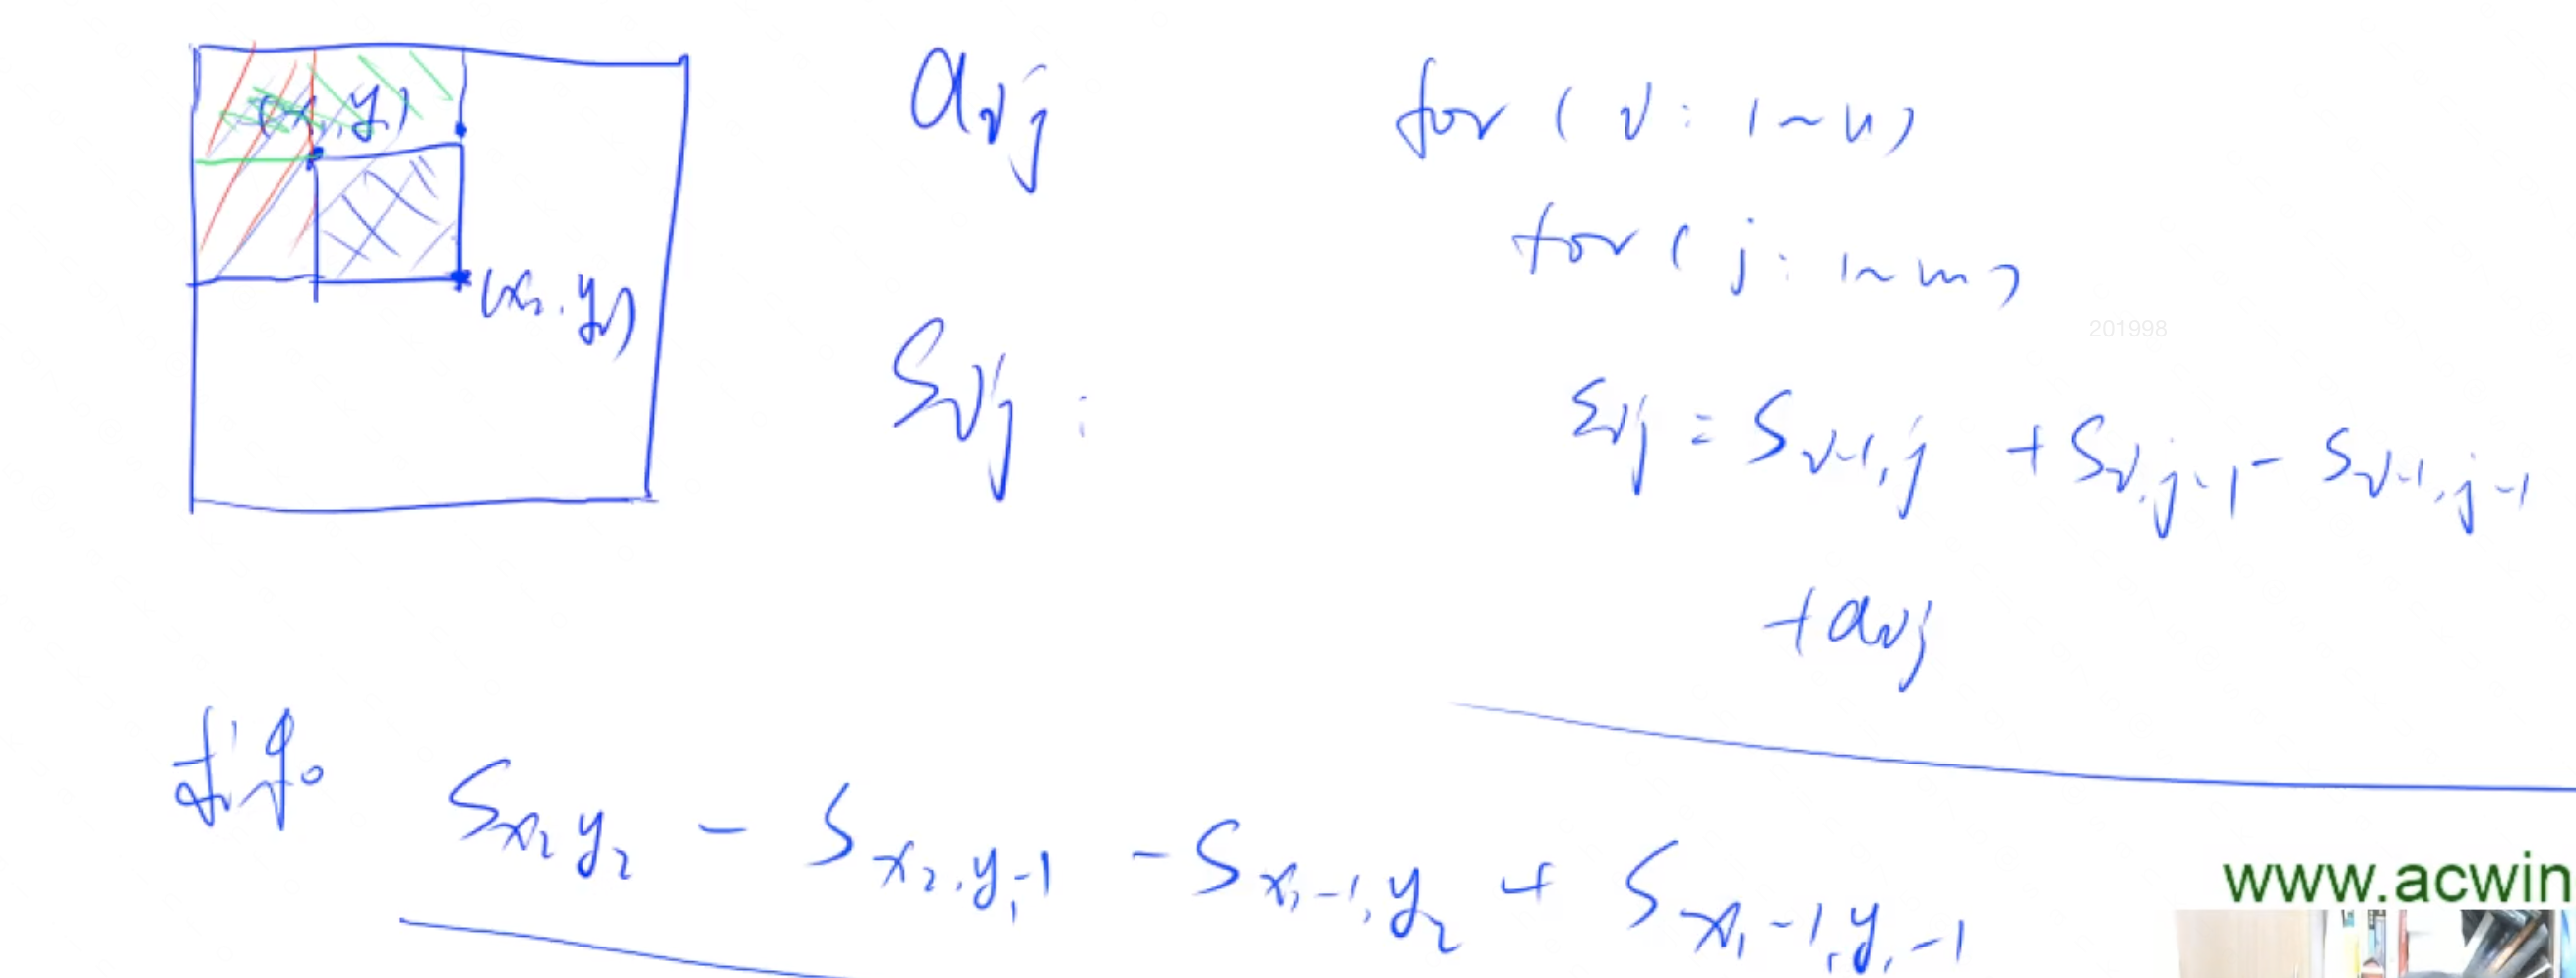 (x₁, y₁)
(x₂, y₂)
aij
Sij :
for ( i : 1~n)
for ( j : 1~m)
201998
Sij = Si-1,j + Si,j-1 - Si-1,j-1
+ aij
Sx₂y₂ - Sx₂,y₁-1 - Sx₁-1,y₂ + Sx₁-1,y₁-1
www.acwin